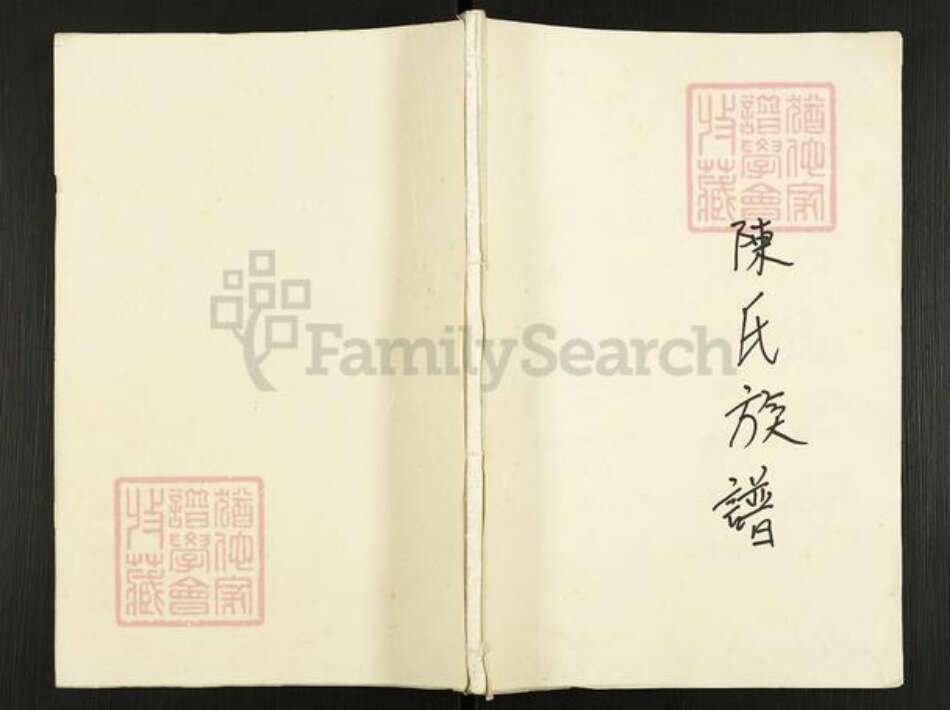 猶他家
譜學會
收藏
陳氏族譜
FamilySearch
猶他家
譜學會
收藏